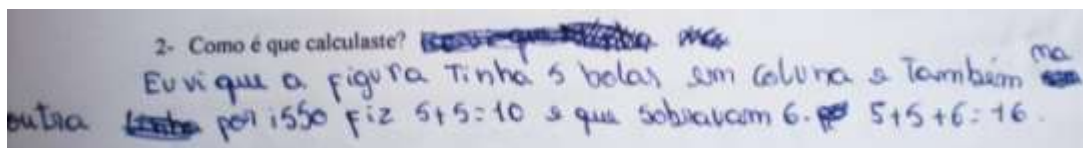 2- Como é que calculaste?
na
Eu vi que a figura Tinha 5 bolas em coluna e Também
outra por isso fiz 5+5=10 e que sobravam 6. 5+5+6=16.